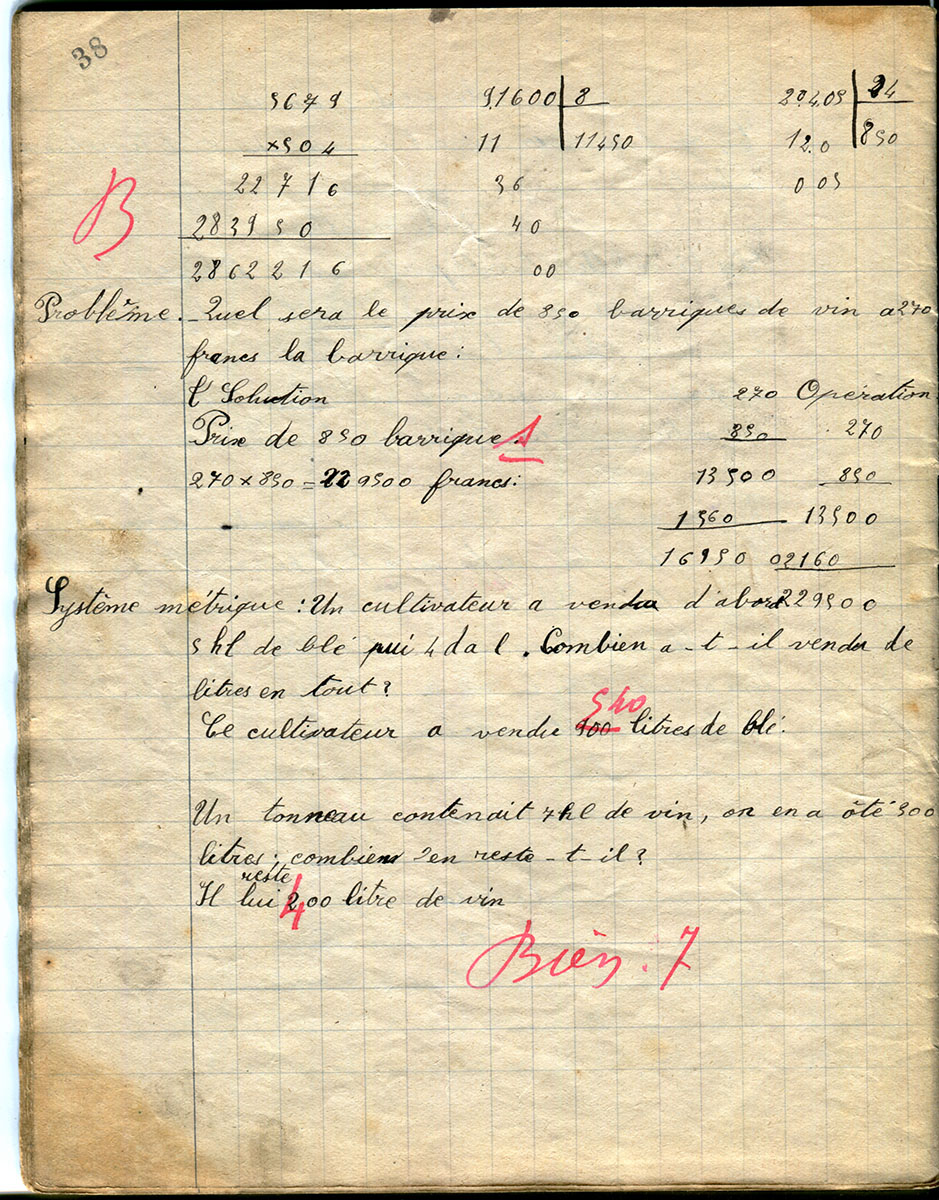 38
5679 91600 8 20405 24
×504 11 11450 120 850
22716 36 005
2839500 40
B
2862216 00
Problème. _ Quel sera le prix de 850 barriques de vin a 270
francs la barrique :
l' Solution 270 Opération
Prix de 850 barrique s. 850 270
270 × 850 = 229500 francs : 13500 850
1360 13500
16950 02160
Système métrique : Un cultivateur a vendu d'abord 229500
5 hl de blé pui 4 da l . Combien a - t - il vendu de
litres en tout ?
540
Ce cultivateur a vendu 900 litres de blé.
Un tonneau contenait 7 hl de vin, on en a ôté 300
litres ; combien en reste - t - il ?
reste
Il lui 400 litre de vin
Bien . 7